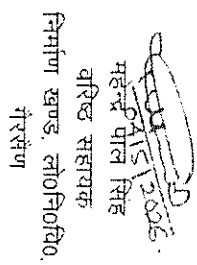 04/5/2026
महेन्द्र पाल सिंह
वरिष्ठ सहायक
निर्माण खण्ड, लो०नि०वि०,
गैरसैंण